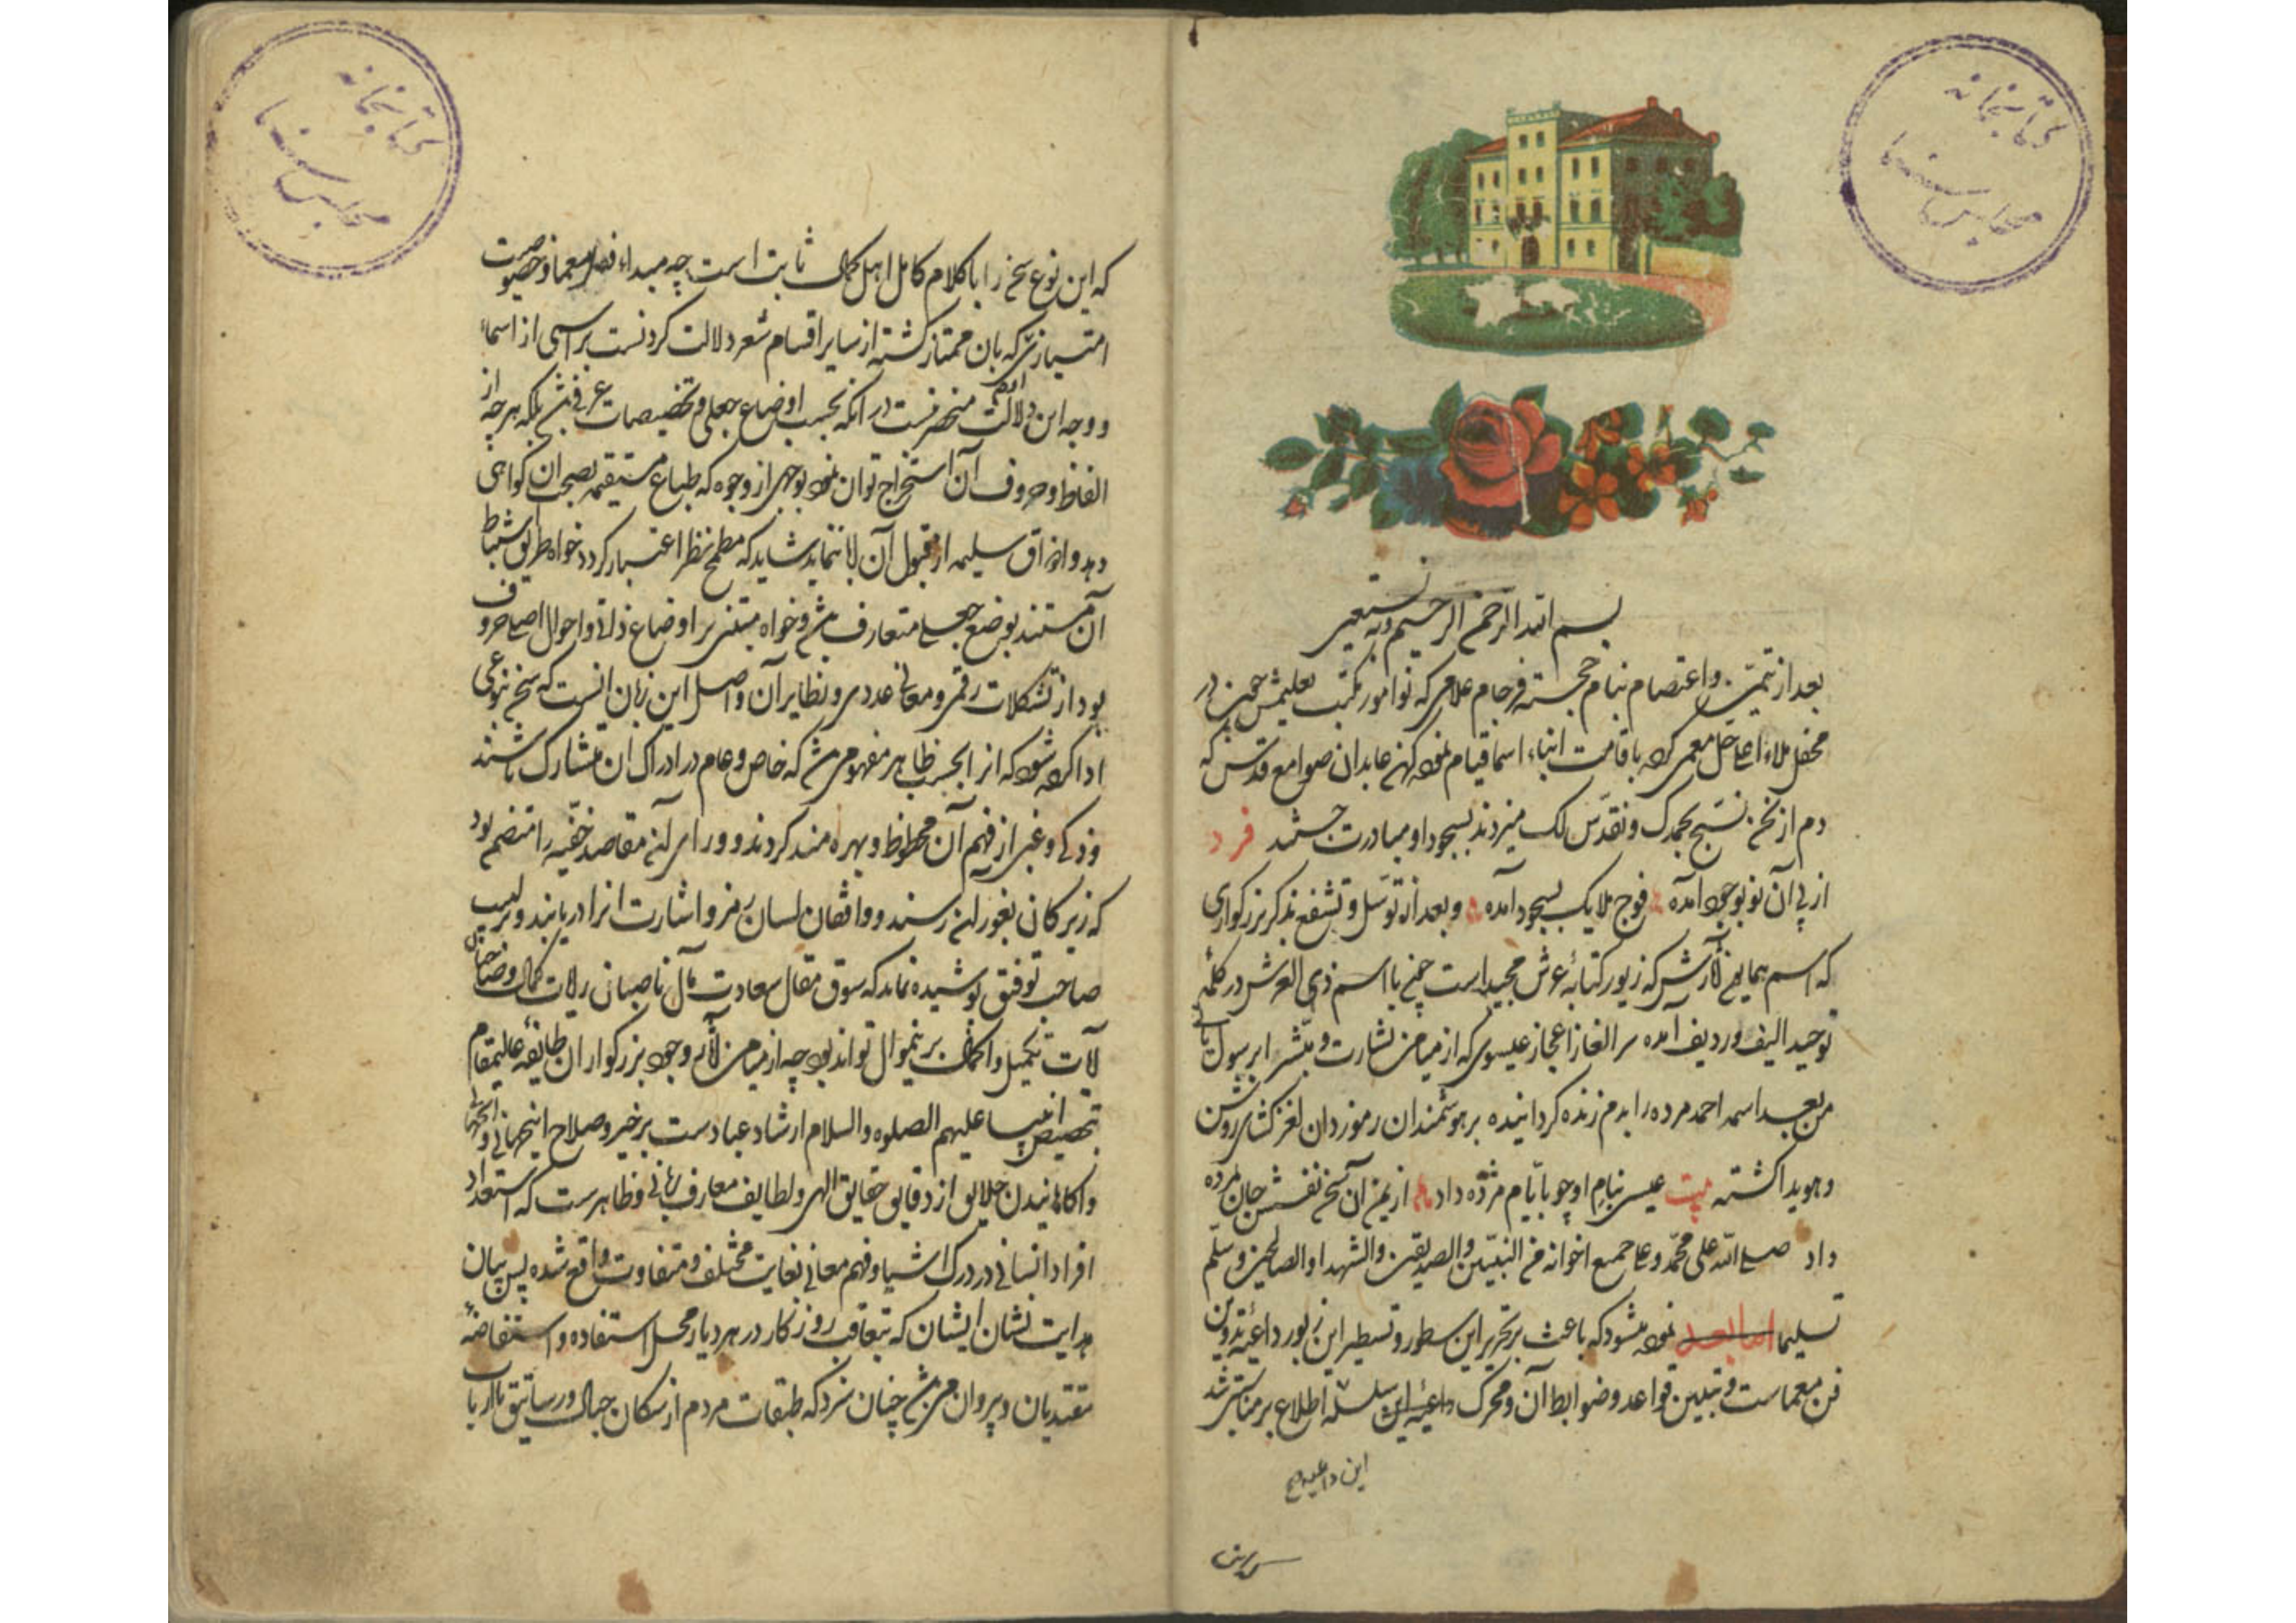 کتابخانه
مجلس سنا
بسم الله الرحمن الرحیم وبه نستعین
بعد از تیمن و اعتصام بنام خجسته فرجام علامی که نوآموز مکتب تعلیمش چون در
محفل ملاء اعلی حل معمی کرده باقامت انباء اسما قیام نموده کهن عابدان صوامع قدس که
دم از نحن نسبح بحمدک و نقدس لک میزدند بسجود او مبادرت جستند فرد
از پی آن نو بوجود آمده فوج ملایک بسجود آمده و بعد از توسل و تشفع بذکر بزرکواری
که اسم همایون آثارش که زیور کتابهٔ عرش مجید است چنین با اسم ذی العرش در کلمهٔ
توحید الیف و ردیف آمده سر الغاز اعجاز عیسوی که از میامن بشارت و مبشرا برسول یاتی
من بعدی اسمه احمد مرده را بدم زنده کردانیده بر هوشمندان رموزدان لغز کشای روشن
و هویدا کشته بیت عیسی بنام او چو بایام مژده داد از یمن آن سخن نفسش جان بمرده
داد صلی الله علی محمد و علی جمیع اخوانه من النبیین والصدیقین والشهدا والصالحین وسلم
تسلیما اما بعد نموده میشود که باعث بر تحریر این سطور و تسطیر این زبور داعیهٔ تدوین
فن معماست و تبیین قواعد و ضوابط آن و محرک داعیه این سلسله اطلاع بر مناسبتی شد
این داعیه صح
کتابخانه
مجلس سنا
که این نوع سخن را با کلام کامل اهل کمال ثابت است چه مبداء فصل معما و خصوصیت
امتیازش که بان ممتاز کشته از سایر اقسام شعر دلالت کردنست بر اسمی از اسماء
و وجه این دلالت منحصر نیست در آنکه بحسب اوضاع جعلی و تخصیصات عرفی باشد بلکه هرچه از
الفاظ و حروف آن استخراج توان نمود بوجهی از وجوه که طباع مستقیمه بصحت آن کواهی
دهد و اذواق سلیمه از قبول آن ابا ننماید شاید که مطمح نظر اعتبار کردد خواه طریق استنباط
آن مستند بوضع جعلی متعارف باشد و خواه مبتنی بر اوضاع ذاتی و احوال اصلی حروف
بود از تشکلات رقمی و معانی عددی و نظایر آن و اصل این زبان آنست که سخن بنوعی
ادا کرده شود که از آن بحسب ظاهر مفهومی باشد که خاص و عام در ادراک آن مشارک باشند
و ذکی و غبی از فهم آن محظوظ و بهره مند کردند و ورای آن مقاصد خفیه را متضمن بود
که زیرکان بغور آن رسند و واقفان لسان رمز و اشارت آنرا دریابند و بر لبیب
صاحب توفیق پوشیده نماند که سوق مقال سعادت مآل ناصبان رایات کمال و صاحبان
آیات تکمیل و اکمال بر این منوال تواند بود چه از میامن آثار وجود بزرکواران طایفه عالیمقام
بتخصیص انبیا علیهم الصلوه والسلام ارشاد عبادست بر خیر و صلاح اینجهانی و آنجهانی
و آکاهانیدن خلایق از دقایق حقایق الهی و لطایف معارف ربانی و ظاهرست که استعداد
افراد انسانی در درک اشیا و فهم معانی بغایت مختلف و متفاوت واقع شده پس بیان
هدایت نشان ایشان که بتعاقب روزکار در هر دیار محل استفاده و استفاضهٔ
مقتدیان و پیروان می باشد چنان سزد که طبقات مردم از سکان جبال و رساتیق تا ارباب